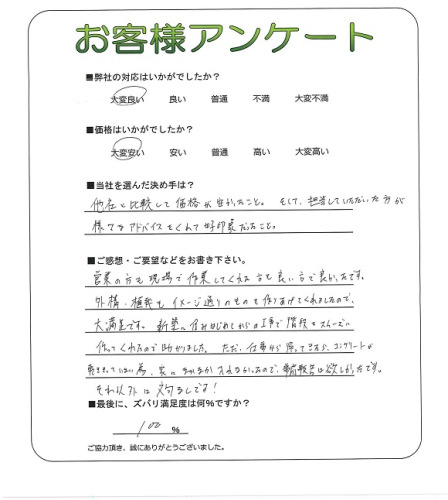 お客様アンケート
■弊社の対応はいかがでしたか?
大変良い 良い 普通 不満 大変不満
■価格はいかがでしたか?
大変安い 安い 普通 高い 大変高い
■当社を選んだ決め手は?
他社と比較して価格が安かったこと。そして、担当していただいた方が
様々なアドバイスをくれて好印象だったこと。
■ご感想・ご要望などをお書き下さい。
営業の方も現場で作業してくれた方も良い方で良かったです。
外構・植栽もイメージ通りのものを作りあげてくれましたので、
大満足です。新築に住みはじめてからの工事で階段をスムーズに
作ってくれたので助かりました。ただ、仕事から帰ってきたら、コンクリートが
固まっていない為、家に なか入れなかったので、 報告は欲しかったです。
それ以外は文句なしです!
■最後に、ズバリ満足度は何%ですか?
100 %
ご協力頂き、誠にありがとうございました。